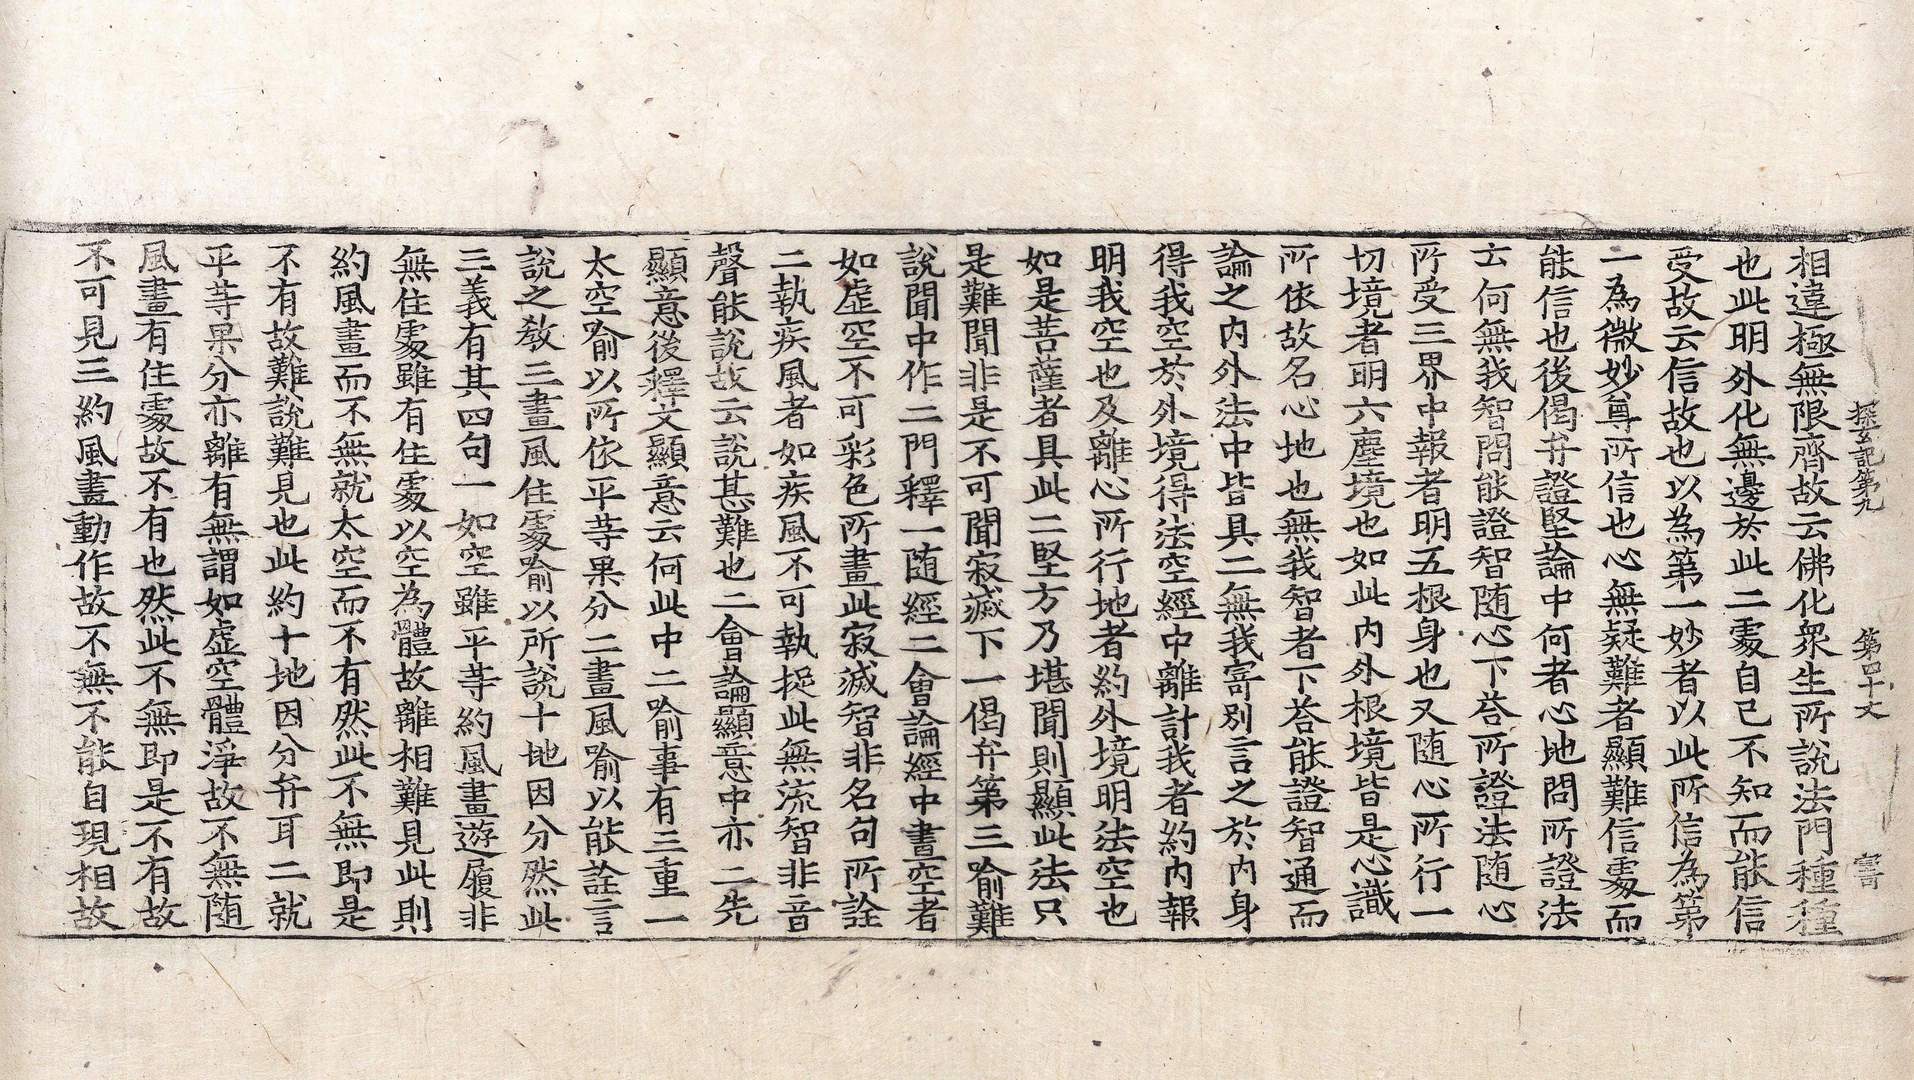 探玄記第九　第四十丈　害
相違極無限齊故云佛化衆生所說法門種種
也此明外化無邊於此二䖏自己不知而能信
受故云信故也以為第一妙者以此所信為第
一為微妙尊所信也心無疑難者顯難信䖏而
能信也後偈弁證堅論中何者心地問所證法
云何無我智問能證智随心下荅所證法随心
所受三界中報者明五根身也又随心所行一
切境者明六塵境也如此内外根境皆是心識
所依故名心地也無我智者下荅能證智通而
論之内外法中皆具二無我寄別言之於内身
得我空於外境得法空經中離計我者約内報
明我空也及離心所行地者約外境明法空也
如是菩薩者具此二堅方乃堪聞則顯此法只
是難聞非是不可聞寂滅下一偈弁第三喻難
說聞中作二門釋一随經二會論經中畫空者
如虛空不可彩色所畫此寂滅智非名句所詮
二執疾風者如疾風不可執捉此無流智非音
聲能說故云說甚難也二會論顯意中亦二先
顯意後釋文顯意云何此中二喻事有三重一
太空喻以所依平等果分二畫風喻以能詮言
說之教三畫風住䖏喻以所說十地因分然此
三義有其四句一如空雖平等約風畫遊履非
無住䖏雖有住䖏以空為體故離相難見此則
約風畫而不無就太空而不有然此不無即是
不有故難說難見也此約十地因分弁耳二就
平等果分亦離有無謂如虛空體淨故不無随
風畫有住䖏故不有也然此不無即是不有故
不可見三約風畫動作故不無不能自現相故